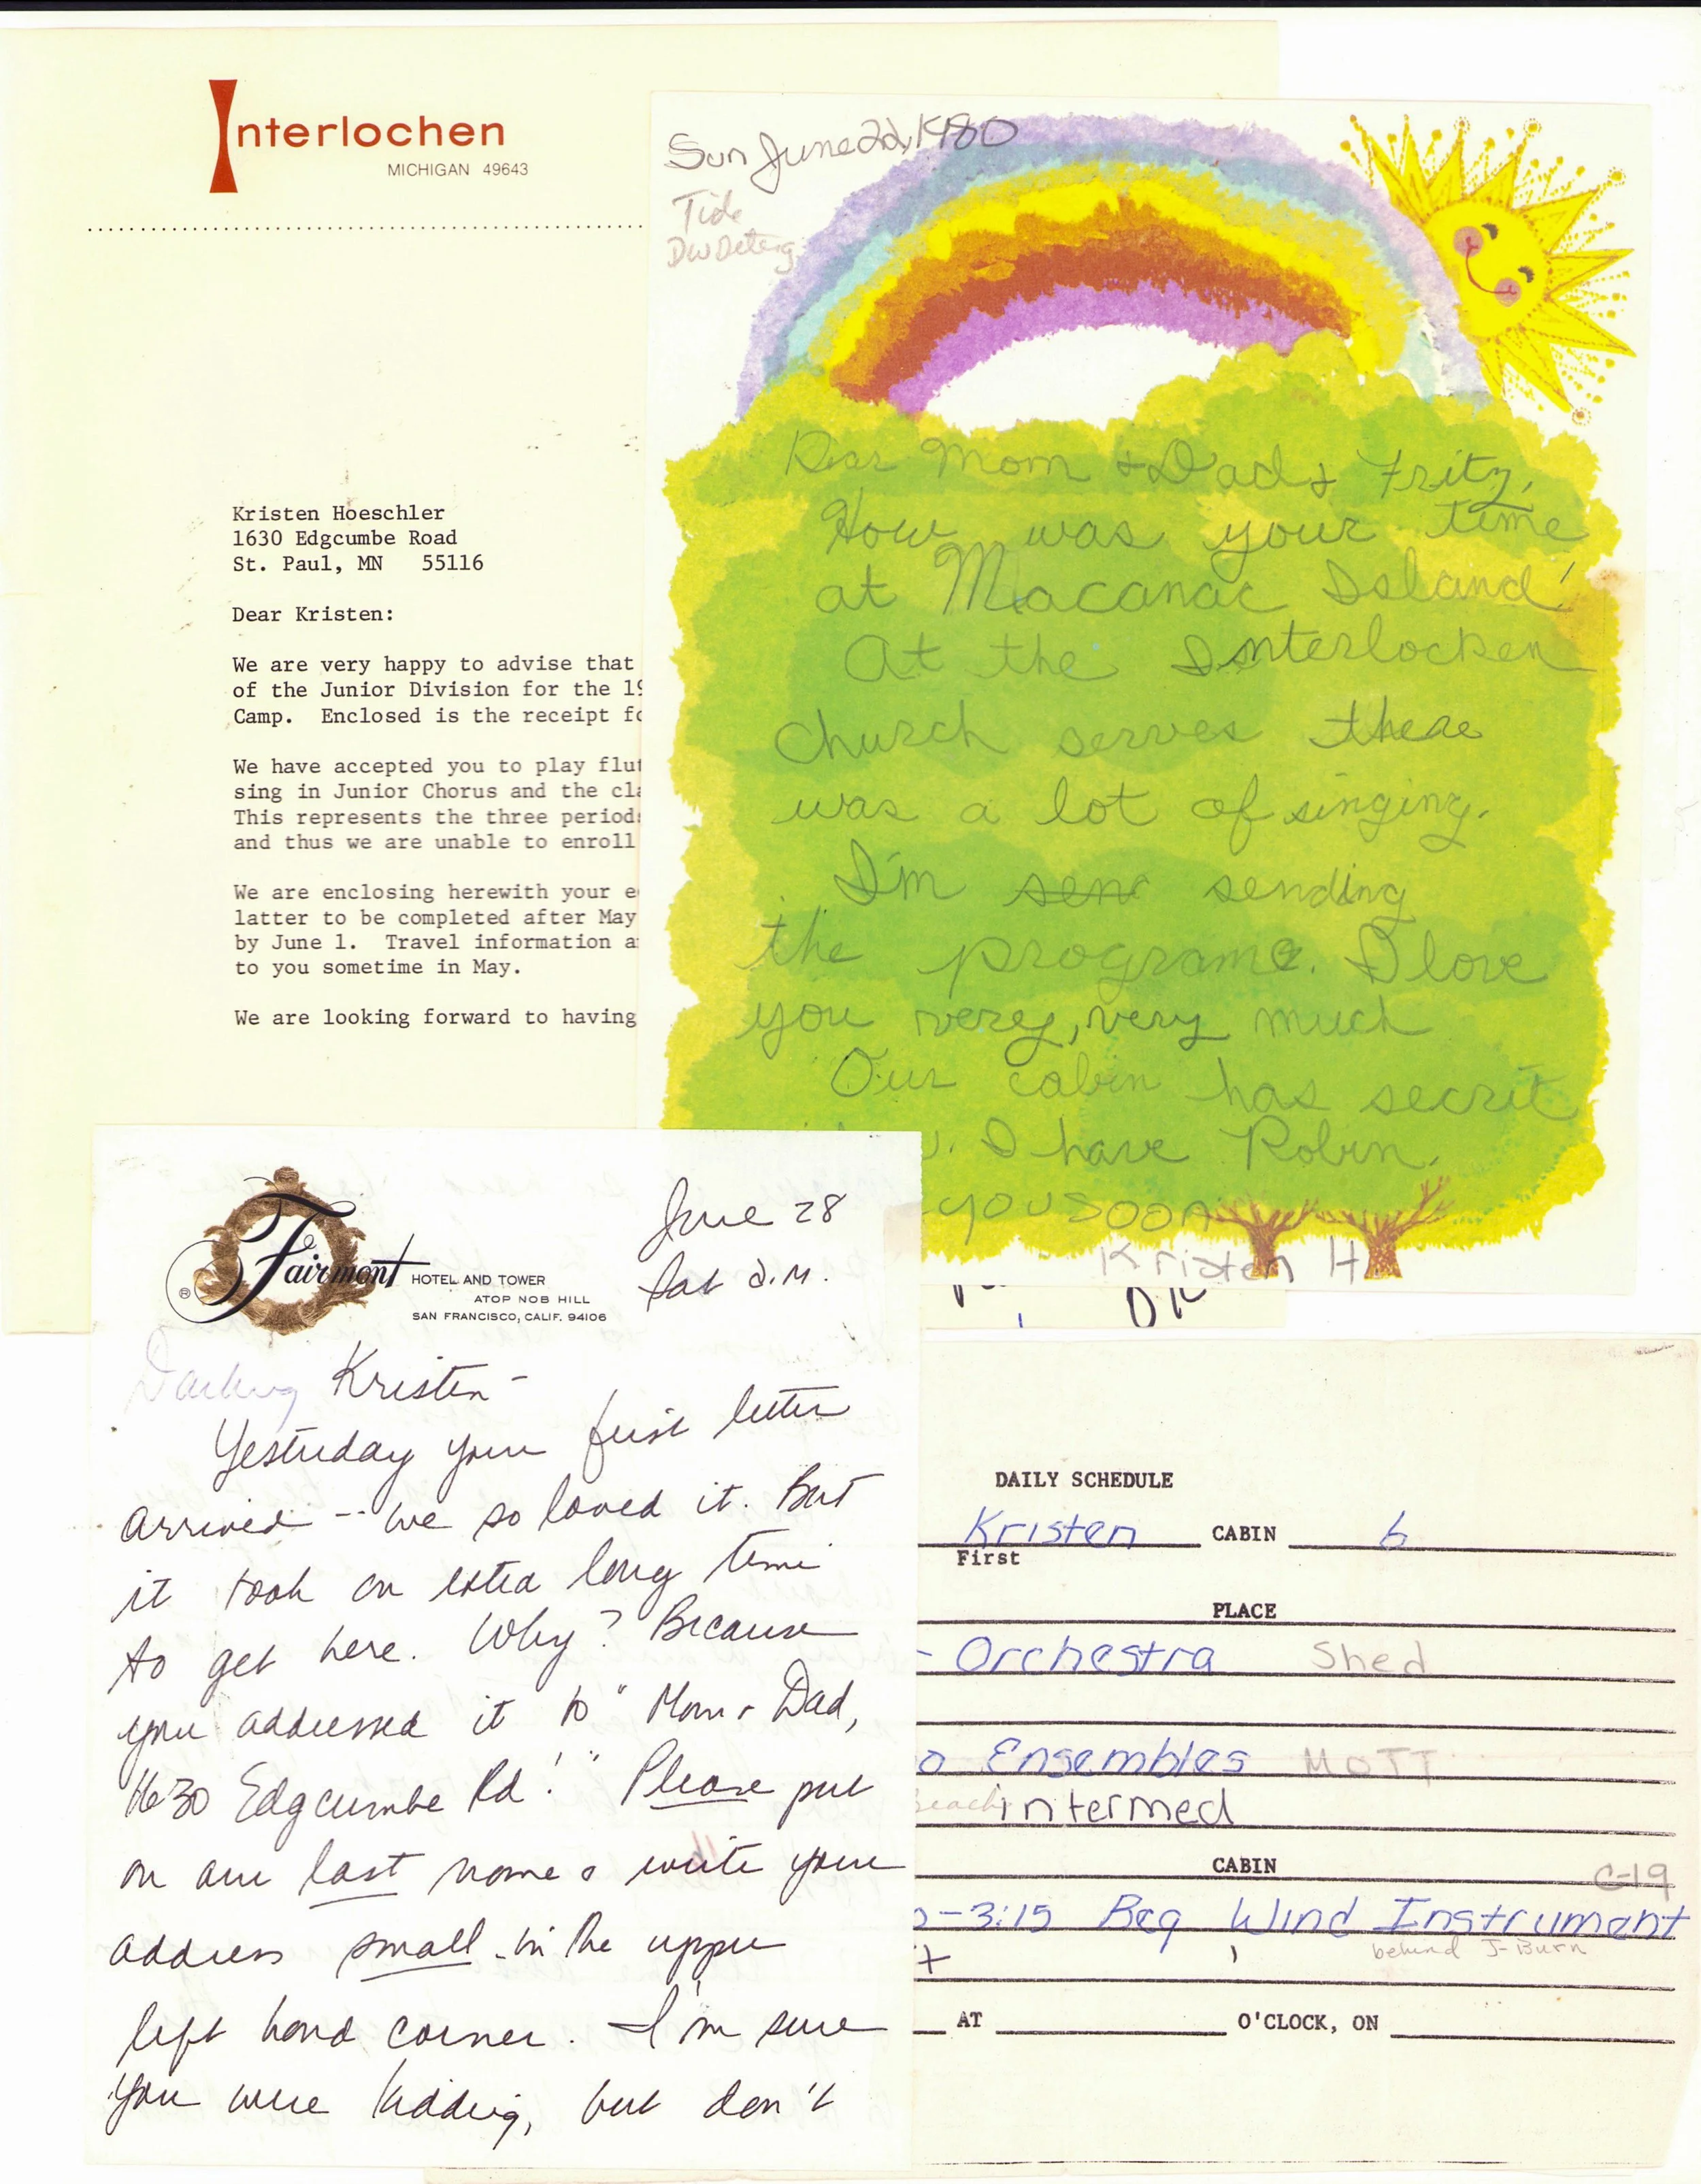 Interlochen
MICHIGAN 49643
Kristen Hoeschler
1630 Edgcumbe Road
St. Paul, MN 55116
Dear Kristen:
We are very happy to advise that
of the Junior Division for the 19
Camp. Enclosed is the receipt fo
We have accepted you to play flut
sing in Junior Chorus and the cla
This represents the three periods
and thus we are unable to enroll
We are enclosing herewith your e
latter to be completed after May
by June 1. Travel information a
to you sometime in May.
We are looking forward to having
Sun June 22, 1980
Tide
Dw Deterg
Dear Mom + Dad + Fritz,
How was your time
at Macanac Island!
At the Interlocken
church serves there
was a lot of singing.
I'm sene sending
the programe. I love
you very, very much
Our cabin has secrit
I have Robin.
you soon
Kristen H
Fairmont HOTEL AND TOWER
ATOP NOB HILL
SAN FRANCISCO, CALIF. 94106
®
June 28
Sat a.m.
Darling Kristen-
Yesterday your first letter
arrived -- we so loved it. But
it took an extra long time
to get here. Why? Because
you addressed it to "Mom + Dad,
1630 Edgcumbe Rd!" Please put
on our last name & write your
address small in the upper
left hand corner. I'm sure
you were kidding, but don't
DAILY SCHEDULE
Kristen CABIN 6
First
PLACE
- Orchestra Shed
o Ensembles MOTT
Beach intermed
CABIN
C-19
-3:15 Beg Wind Instrument
behind J-Burn
AT O'CLOCK, ON